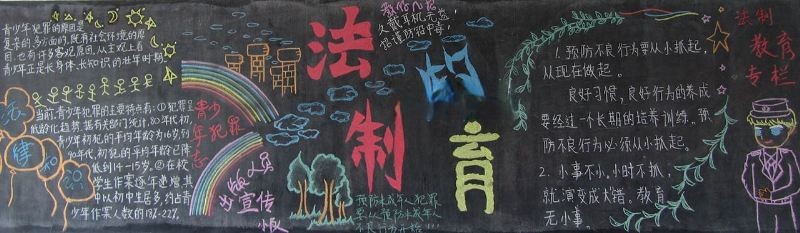 青少年犯罪的原因是
复杂的多方面的,既有社会环境的原
因,也有许多客观原因,从主观上看
青少年正是长身体、长知识的壮年时期
当前,青少年犯罪的主要特点有:①犯罪呈
低龄化趋势,据有关部门统计,80年代初,
青少年初犯的平均年龄为16岁到
90年代,初犯的平均年龄已降
低到14-15岁。②在校
学生作案逐年递增,其
中以初中生居多,约占青
少年作案人数的18%-22%。
法
律
青少
年犯罪
出版人员
出版宣传
小版
法
制
教
育
预防未成年人犯罪
要从预防未成年人
1. 预防不良行为要从小抓起,
从现在做起。
良好习惯,良好行为的养成
要经过一个长期的培养训练。预
防不良行为必须从小抓起。
2. 小事不小,小时不抓,
就演变成大错。教育
无小事。
法制
教育
专栏